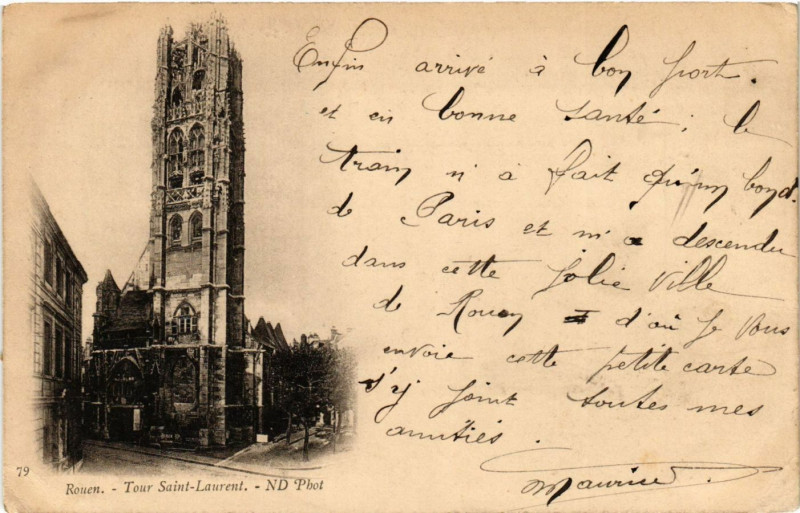 Enfin arrivé à bon port.
et en bonne santé; le
train n'a fait qu'un bond.
de Paris et m'a descendu
dans cette jolie ville
de Rouen d'où je vous
envoie cette petite carte
s'y joint toutes mes
amitiés.
Maurice
79
Rouen. - Tour Saint-Laurent. - ND Phot